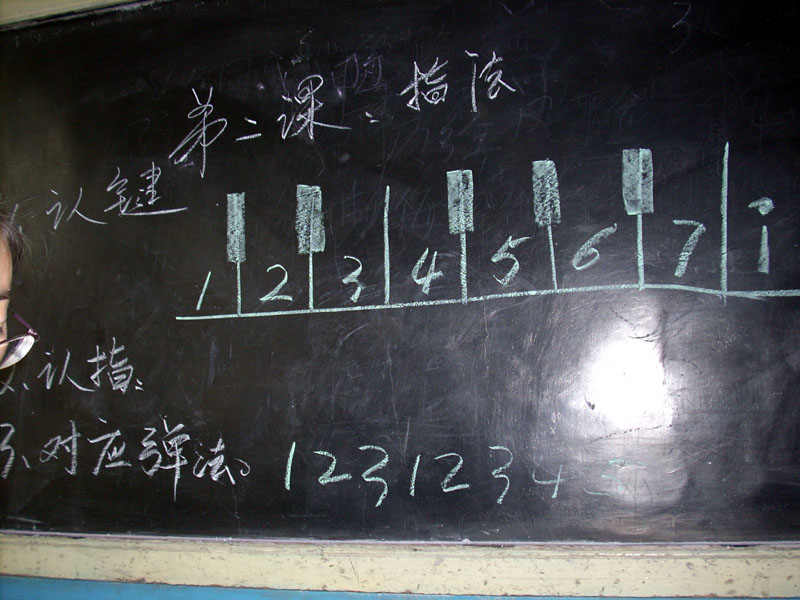 第二课：指法
1、认键
1 2 3 4 5 6 7 i
2、认指：
3、对应弹法。 1 2 3 1 2 3 4 5